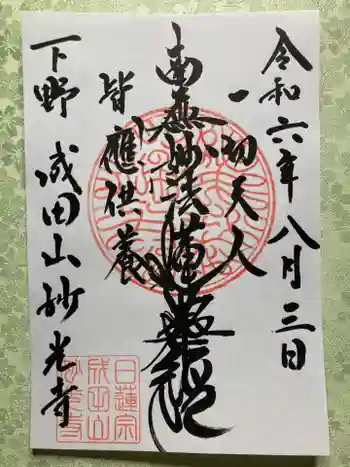 令和六年八月三日
一切天人
南無妙法蓮華経
皆應供養
下野 成田山妙光寺
日蓮宗
成田山
妙光寺